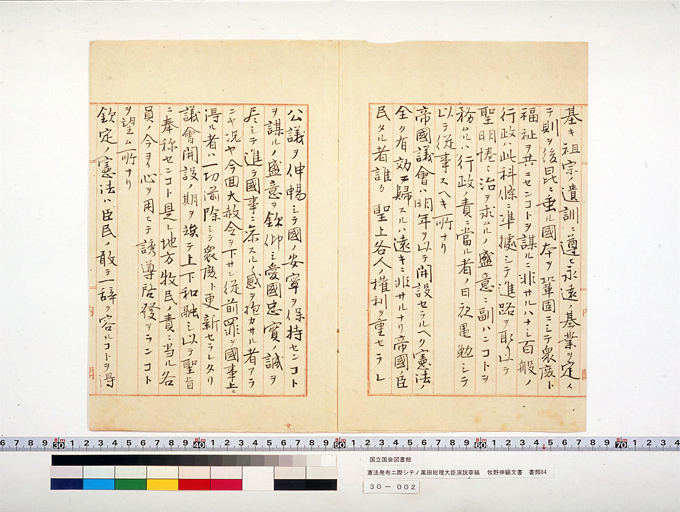 基キ祖宗ノ遺訓ニ遵ヒ永遠ノ基業ヲ定メ
テ則ヲ後昆ニ垂レ國本ヲ鞏固ニシテ衆庶ト
福祉ヲ共ニセンコトヲ謀ルニ非サルハナシ百般ノ
行政ハ此科條ニ準據シテ進路ヲ取リ以テ
聖明惓ニ治ヲ求ムルノ盛意ニ副ハンコトヲ
務ムルハ行政ノ責ニ當ル者ノ日夜黽勉シテ
以テ從事スヘキ所ナリ
帝國議會ハ明年ヲ以テ開設セラルヘク憲法ノ
全ク有効ニ歸スルハ遠キニ非サルナリ帝國ノ臣
民タル者誰カ 聖上各人ノ權利ヲ重セラレ
公議ヲ伸暢シテ國ノ安寧ヲ保持センコト
ヲ謀ルノ盛意ヲ欽仰シ愛國忠實ノ誠ヲ
尽シテ進テ國事ニ参スルノ感ヲ抱カサル者アラ
ニヤ況ヤ今回大赦令ヲ下サレ從前罪ヲ國事上ニ
得ル者ハ一切前除シテ衆庶ト更新セラレタリ
議會開設ノ期ヲ竢テ上下和融シ以テ聖旨
ニ奉称センコト是レ地方牧民ノ責ニ当ル各
員ノ今ヨリ心ヲ用ヒテ誘導啓發アランコト
ヲ望ム所ナリ
欽定ノ憲法ハ臣民ノ敢テ一辞ヲ容ルコトヲ得
国立国会図書館
憲法発布ニ際シテノ黒田総理大臣演説草稿 牧野伸顕文書 書類84
30-002